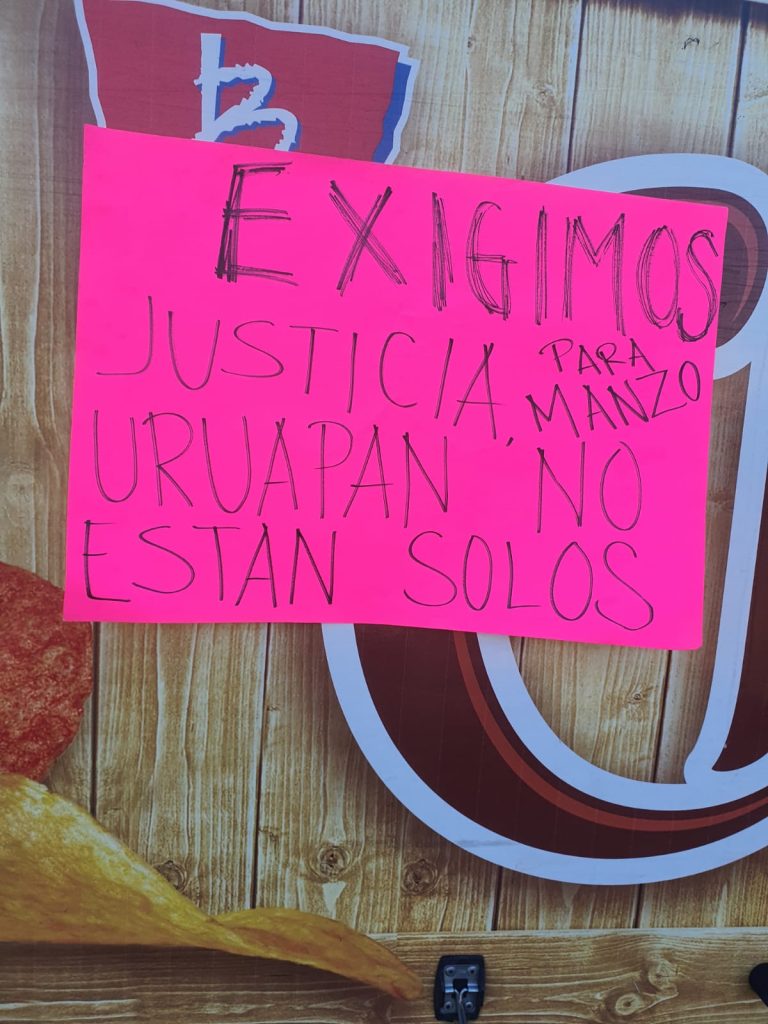 B
EXIGIMOS
JUSTICIA, PARA
MANZO
URUAPAN NO
ESTÁN SOLOS